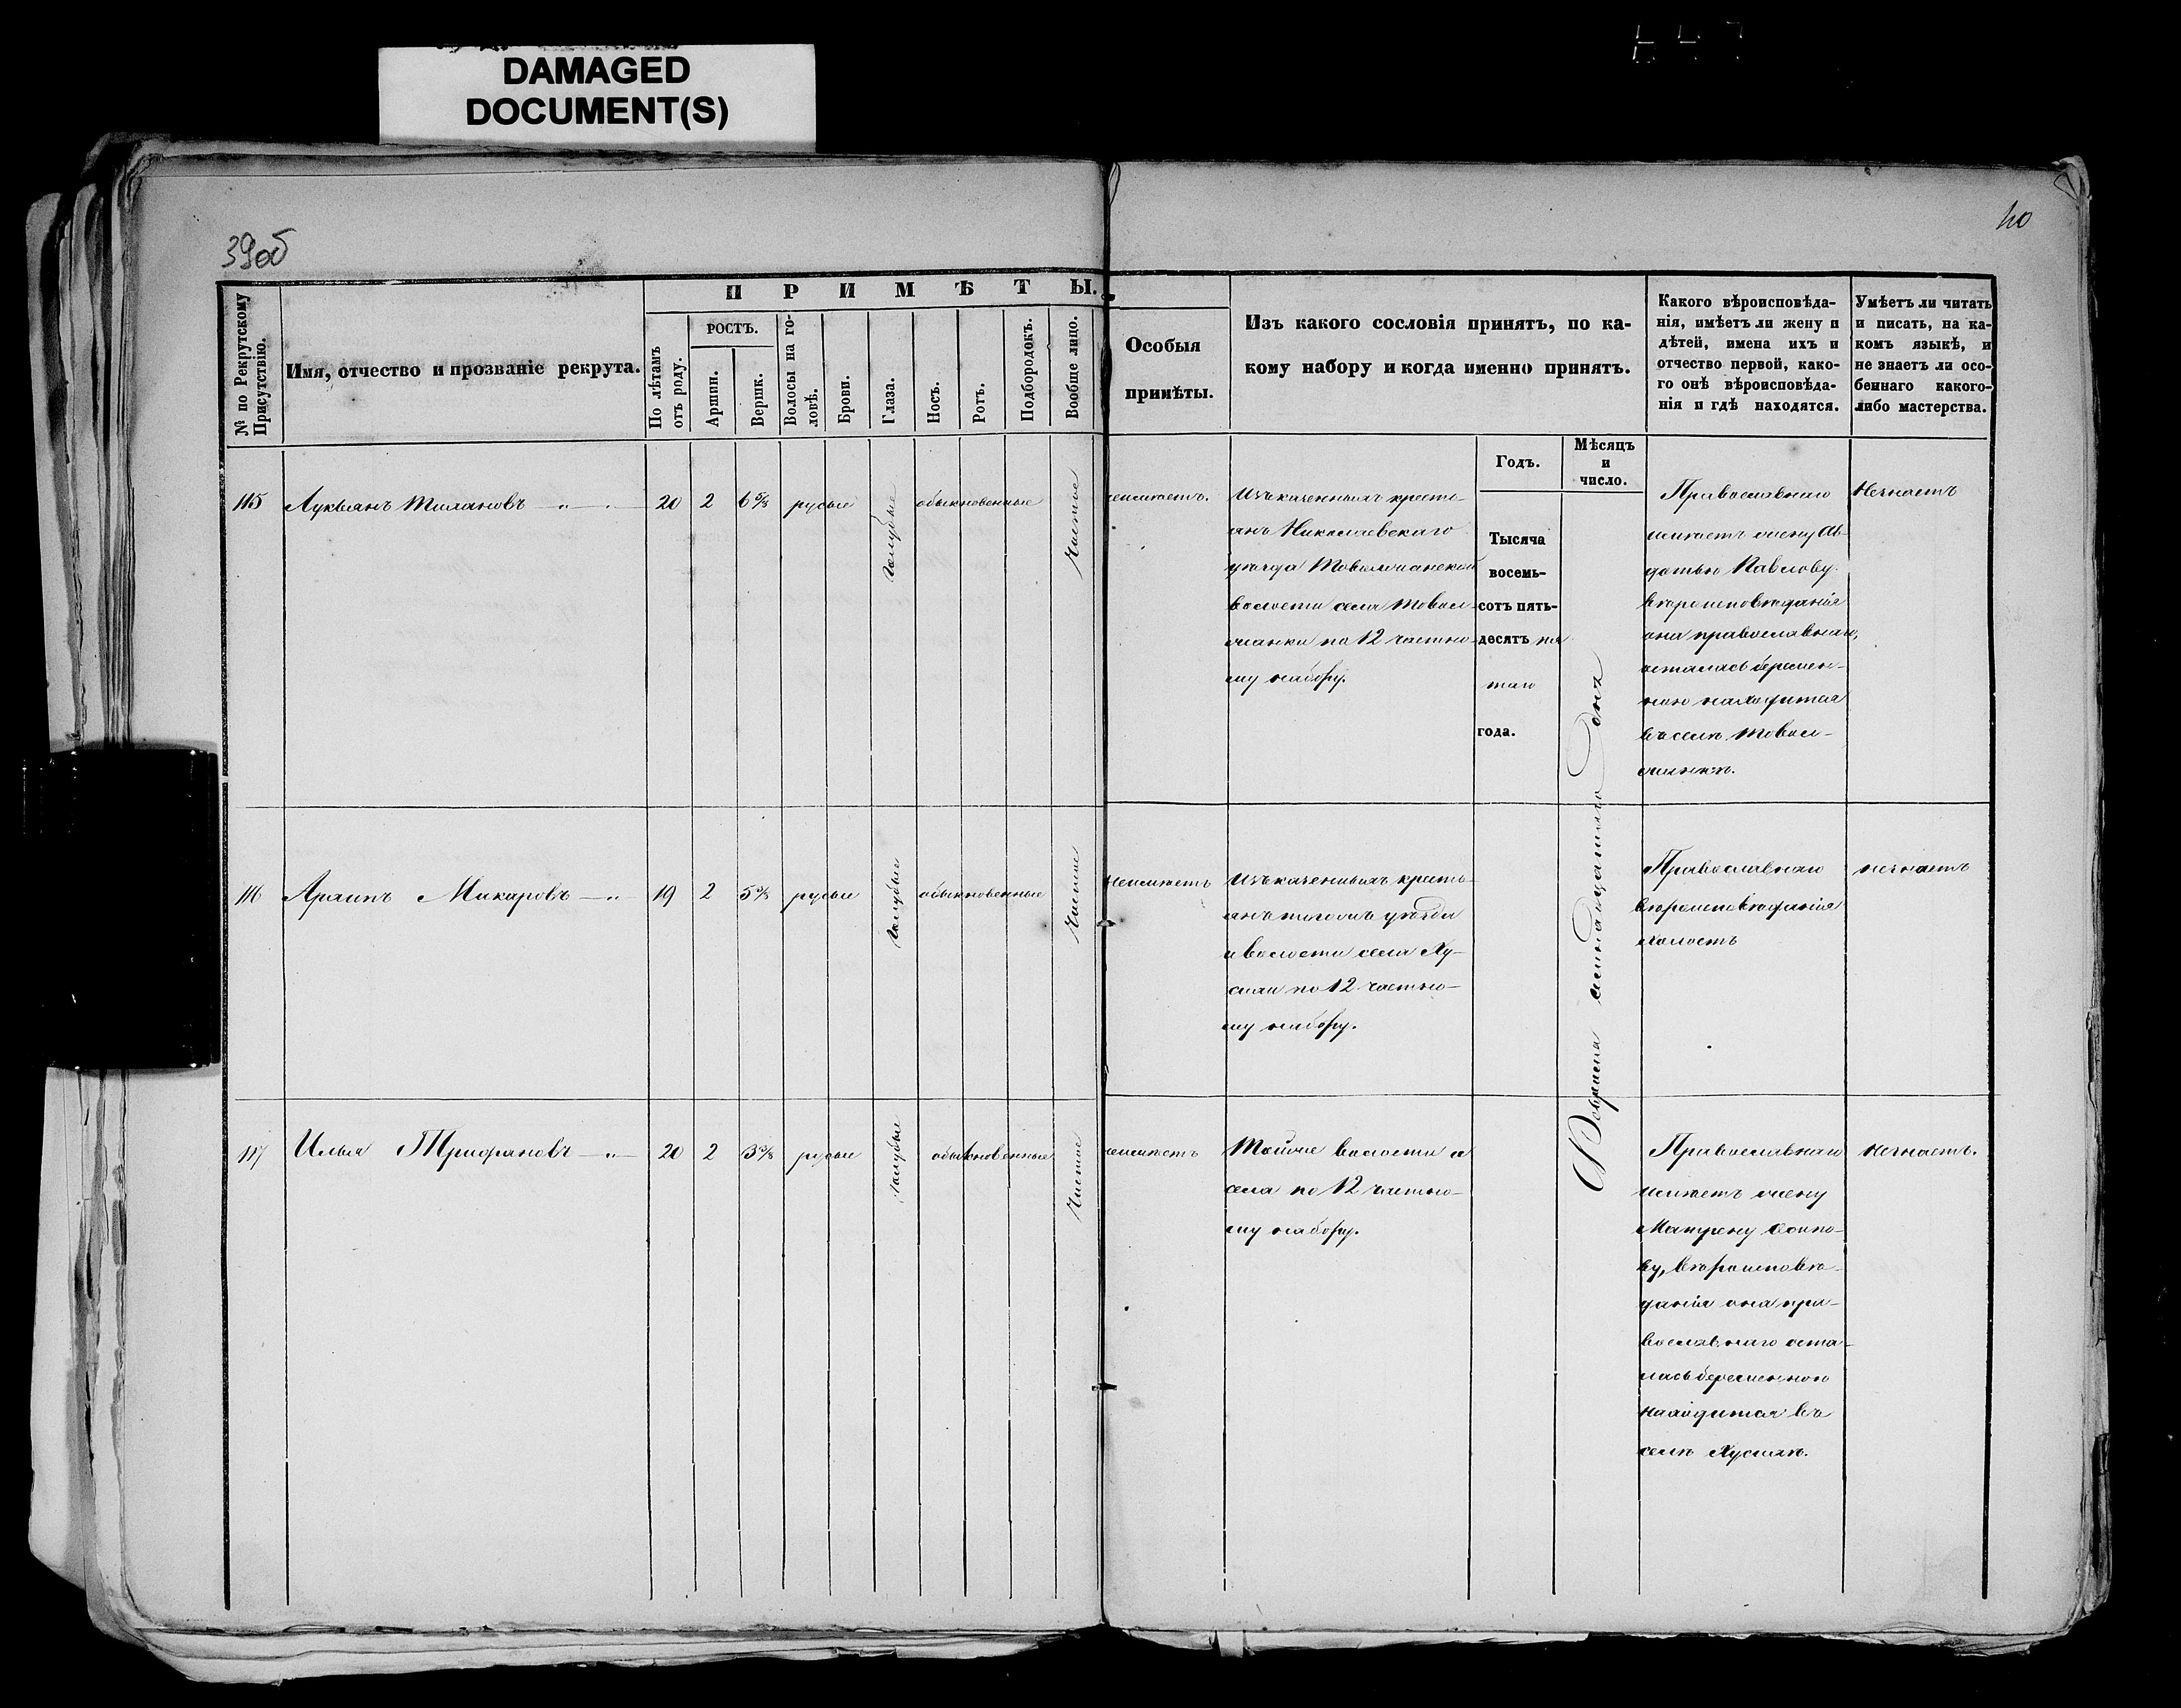 DAMAGED
DOCUMENT(S)
39об
40
№ по Рекрутскому Присутствію.
Имя, отчество и прозваніе рекрута.
ПРИМѢТЫ.
По лѣтамъ отъ роду.
РОСТЪ.
Аршин.
Вершк.
Волосы на головѣ.
Брови.
Глаза.
Носъ.
Ротъ.
Подбородокъ.
Вообще лицо.
Особыя
примѣты.
Изъ какого сословія принятъ, по ка-
кому набору и когда именно принятъ.
Годъ.
Мѣсяцъ
и
число.
Какого вѣроисповѣда-
нія, имѣетъ ли жену и
дѣтей, имена ихъ и
отчество первой, како-
го онѣ вѣроисповѣда-
нія и гдѣ находятся.
Умѣетъ ли читать
и писать, на ка-
комъ языкѣ, и
не знаетъ ли осо-
беннаго какого-
либо мастерства.
115 Лукьянъ 20 2 6 5/8 русые голубые обыкновенные чистое
неимѣетъ.
Изъ казенныхъ кресть-
янъ Николаевскаго
уѣзда Товолжанской
волости села Товол-
жанки по 12 частно-
му набору.
Тысяча
восемь-
сотъ пять-
десятъ пя
таго
года.
Февраля дня
Православнаго
имѣетъ жену Ав-
дотью Павлову
вѣроисповѣданія
она православнаго,
осталась беремен-
ною находится
въ селѣ Товол-
жанкѣ.
Незнаетъ
116 Архипъ Макаровъ 19 2 русые голубые обыкновенные чистое
Неимѣетъ
Изъ казенныхъ кресть-
янъ того жъ уѣзда
и волости села Ху-
по 12 частно-
му набору.
Православнаго
вѣроисповѣданія
холостъ
незнаетъ
117 Илья Трифоновъ 20 2 русые голубые обыкновенные чистое
неимѣетъ
Той же волости и
села по 12 частно-
му набору.
Православнаго
имѣетъ жену
Матрену
ву, вѣроисповѣ-
данія она пра-
вославнаго оста-
лась беременною
находится въ
селѣ
незнаетъ.